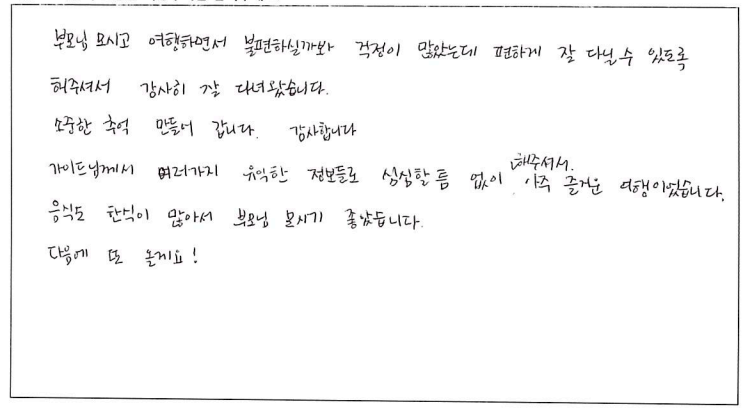 부모님 모시고 여행하면서 불편하실까봐 걱정이 많았는데 편하게 잘 다닐 수 있도록
해주셔서 감사히 잘 다녀왔습니다.
소중한 추억 만들어 갑니다. 감사합니다
가이드님께서 여러가지 유익한 정보들로 심심할 틈 없이 해주셔서. 아주 즐거운 여행이었습니다.
음식도 한식이 많아서 부모님 모시기 좋았습니다.
다음에 또 올게요!